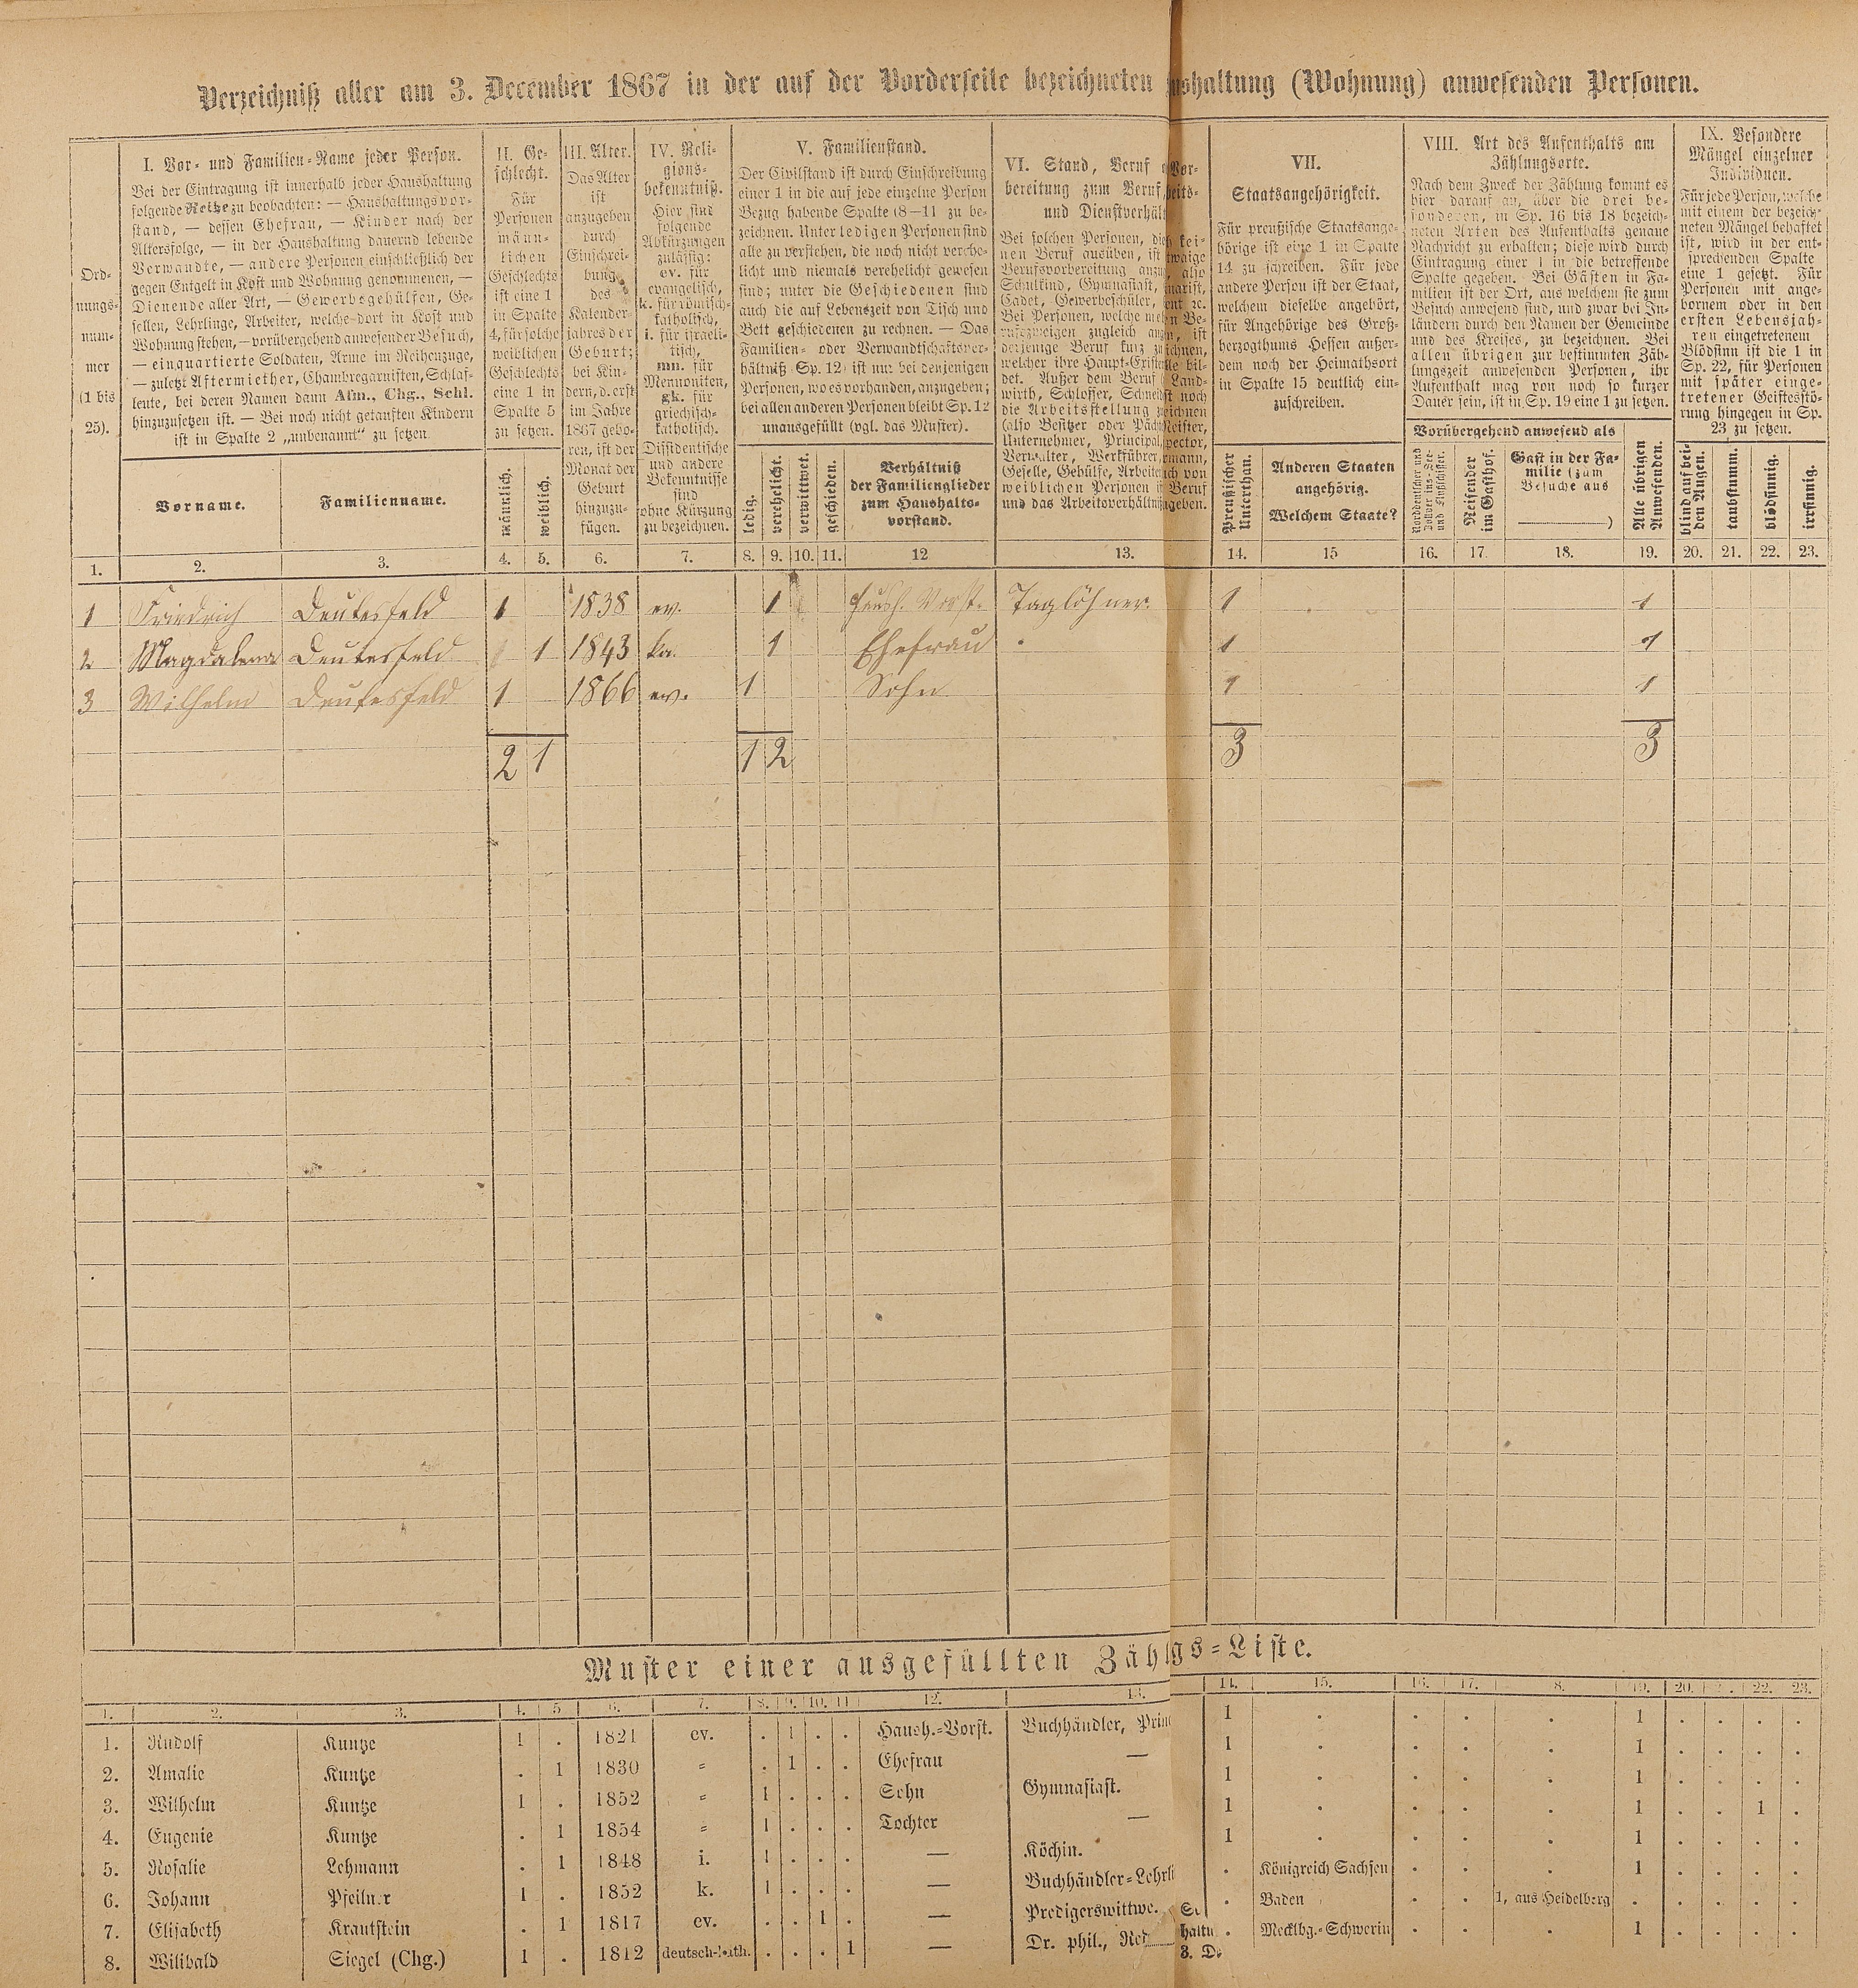 Verzeichniß aller am 3. December 1867 in der auf der Vorderseite bezeichneten ushaltung (Wohnung) anwesenden Personen.
Ord-
nungs-
num-
mer
(1 bis
25).
I. Vor- und Familien-Name jeder Person.
Bei der Eintragung ist innerhalb jeder Haushaltung
folgende Reihe zu beobachten: — Haushaltungsvor-
stand, — dessen Ehefrau, — Kinder nach der
Altersfolge, — in der Haushaltung dauernd lebende
Verwandte, — andere Personen einschließlich der
gegen Entgelt in Kost und Wohnung genommenen, —
Dienende aller Art, — Gewerbsgehülfen, Ge-
sellen, Lehrlinge, Arbeiter, welche dort in Kost und
Wohnung stehen, — vorübergehend anwesender Besuch,
— einquartierte Soldaten, Arme im Reihenzuge,
— zuletzt Aftermiether, Chambregarnisten, Schlaf-
leute, bei deren Namen dann Afm., Chg., Schl.
hinzuzusetzen ist. — Bei noch nicht getauften Kindern
ist in Spalte 2 „unbenannt“ zu setzen.
Vorname.
Familienname.
II. Ge-
schlecht.
Für
Personen
männ-
lichen
Geschlechts
ist eine 1
in Spalte
4, für solche
weiblichen
Geschlechts
eine 1 in
Spalte 5
zu setzen.
männlich.
weiblich.
III. Alter.
Das Alter
ist
anzugeben
durch
Einschrei-
bung
des
Kalender-
jahres der
Geburt;
bei Kin-
dern, d. erst
im Jahre
1867 gebo-
ren, ist der
Monat der
Geburt
hinzuzu-
fügen.
IV. Reli-
gions-
bekenntniß.
Hier sind
folgende
Abkürzungen
zulässig:
ev. für
evangelisch,
k. für römisch-
katholisch,
i. für israeli-
tisch,
mn. für
Mennoniten,
gk. für
griechisch-
katholisch.
Dissidentische
und andere
Bekenntnisse
sind
ohne Kürzung
zu bezeichnen.
V. Familienstand.
Der Civilstand ist durch Einschreibung
einer 1 in die auf jede einzelne Person
Bezug habende Spalte (8—11 zu be-
zeichnen. Unter ledigen Personen sind
alle zu verstehen, die noch nicht verehe-
licht und niemals verehelicht gewesen
sind; unter die Geschiedenen sind
auch die auf Lebenszeit von Tisch und
Bett geschiedenen zu rechnen. — Das
Familien- oder Verwandtschaftsver-
hältniß (Sp. 12) ist nur bei denjenigen
Personen, wo es vorhanden, anzugeben;
bei allen anderen Personen bleibt Sp. 12
unausgefüllt (vgl. das Muster).
ledig.
verehelicht.
verwittwet.
geschieden.
Verhältniß
der Familienglieder
zum Haushalts-
vorstand.
VI. Stand, Beruf
bereitung zum Beruf,
und Dienstverhält
Bei solchen Personen, die
nen Beruf ausüben, ist
Berufsvorbereitung anzu
Schulkind, Gymnasiast,
Cadet, Gewerbeschüler,
Bei Personen, welche me
rufszweigen zugleich an
derjenige Beruf kurz zu
welcher ihre Haupt-Existe
det. Außer dem Beruf
wirth, Schlosser, Schnei
die Arbeitsstellung
(also Besitzer oder Päch
Unternehmer, Principal,
Verwalter, Werkführer,
Geselle, Gehülfe, Arbeite
weiblichen Personen
und das Arbeitsverhältni
VII.
Staatsangehörigkeit.
Für preußische Staatsange-
hörige ist eine 1 in Spalte
14 zu schreiben. Für jede
andere Person ist der Staat,
welchem dieselbe angehört,
für Angehörige des Groß-
herzogthums Hessen außer-
dem noch der Heimathsort
in Spalte 15 deutlich ein-
zuschreiben.
Preußischer
Unterthan.
Anderen Staaten
angehörig.
Welchem Staate?
VIII. Art des Aufenthalts am
Zählungsorte.
Nach dem Zweck der Zählung kommt es
hier darauf an, über die drei be-
sonderen, in Sp. 16 bis 18 bezeich-
neten Arten des Aufenthalts genaue
Nachricht zu erhalten; diese wird durch
Eintragung einer 1 in die betreffende
Spalte gegeben. Bei Gästen in Fa-
milien ist der Ort, aus welchem sie zum
Besuch anwesend sind, und zwar bei In-
ländern durch den Namen der Gemeinde
und des Kreises, zu bezeichnen. Bei
allen übrigen zur bestimmten Zäh-
lungszeit anwesenden Personen, ihr
Aufenthalt mag von noch so kurzer
Dauer sein, ist in Sp. 19 eine 1 zu setzen.
Vorübergehend anwesend als
Reisender
im Gasthof.
Gast in der Fa-
milie (zum
Besuche aus
)
Alle übrigen
Anwesenden.
IX. Besondere
Mängel einzelner
Individuen.
Für jede Person, welche
mit einem der bezeich-
neten Mängel behaftet
ist, wird in der ent-
sprechenden Spalte
eine 1 gesetzt. Für
Personen mit ange-
bornem oder in den
ersten Lebensjah-
ren eingetretenem
Blödsinn ist die 1 in
Sp. 22, für Personen
mit später einge-
tretener Geistesstö-
rung hingegen in Sp.
23 zu setzen.
blind auf bei-
den Augen.
taubstumm.
blödsinnig.
irrsinnig.
1. 2. 3. 4. 5. 6. 7. 8. 9. 10. 11. 12 13. 14. 15 16. 17. 18. 19. 20. 21. 22. 23.
1 Friedrich Deutesfeld 1 1838 ev. 1 Haush. Vorst. Taglöhner. 1 1
2 Magdalena Deutesfeld 1 1843 ka. 1 Ehefrau 1 1
3 Wilhelm Deutesfeld 1 1866 ev. 1 Sohn 1 1
2 1 1 2 3 3
Muster einer ausgefüllten Zählgs-Liste.
1. 2. 3. 4. 5 6. 7. 8. 9. 10. 11 12. 13. 14. 15. 16. 17. 8. 19. 20. 22. 23.
1. Rudolf Kuntze 1 . 1821 ev. . 1 . . Haush.-Vorst. Buchhändler, Prin 1 . . . . 1 . . . .
2. Amalie Kuntze . 1 1830 " . 1 . . Ehefrau — 1 . . . . 1 . . . .
3. Wilhelm Kuntze 1 . 1852 " 1 . . . Sohn Gymnasiast. 1 . . . . 1 . . . .
4. Eugenie Kuntze . 1 1854 " 1 . . . Tochter — 1 . . . . 1 . . 1 .
5. Rosalie Lehmann . 1 1848 i. 1 . . . — Köchin. 1 . . . . 1 . . . .
6. Johann Pfeilner 1 . 1852 k. 1 . . . — Buchhändler-Lehrli . Königreich Sachsen . . . 1 . . . .
7. Elisabeth Krautstein . 1 1817 ev. . . 1 . — Predigerswittwe. . Baden . . 1, aus Heidelberg . . . . .
8. Wilibald Siegel (Chg.) 1 . 1812 deutsch-kath. . . . 1 — Dr. phil., Red . Mecklbg.-Schwerin . . . 1 . . . .